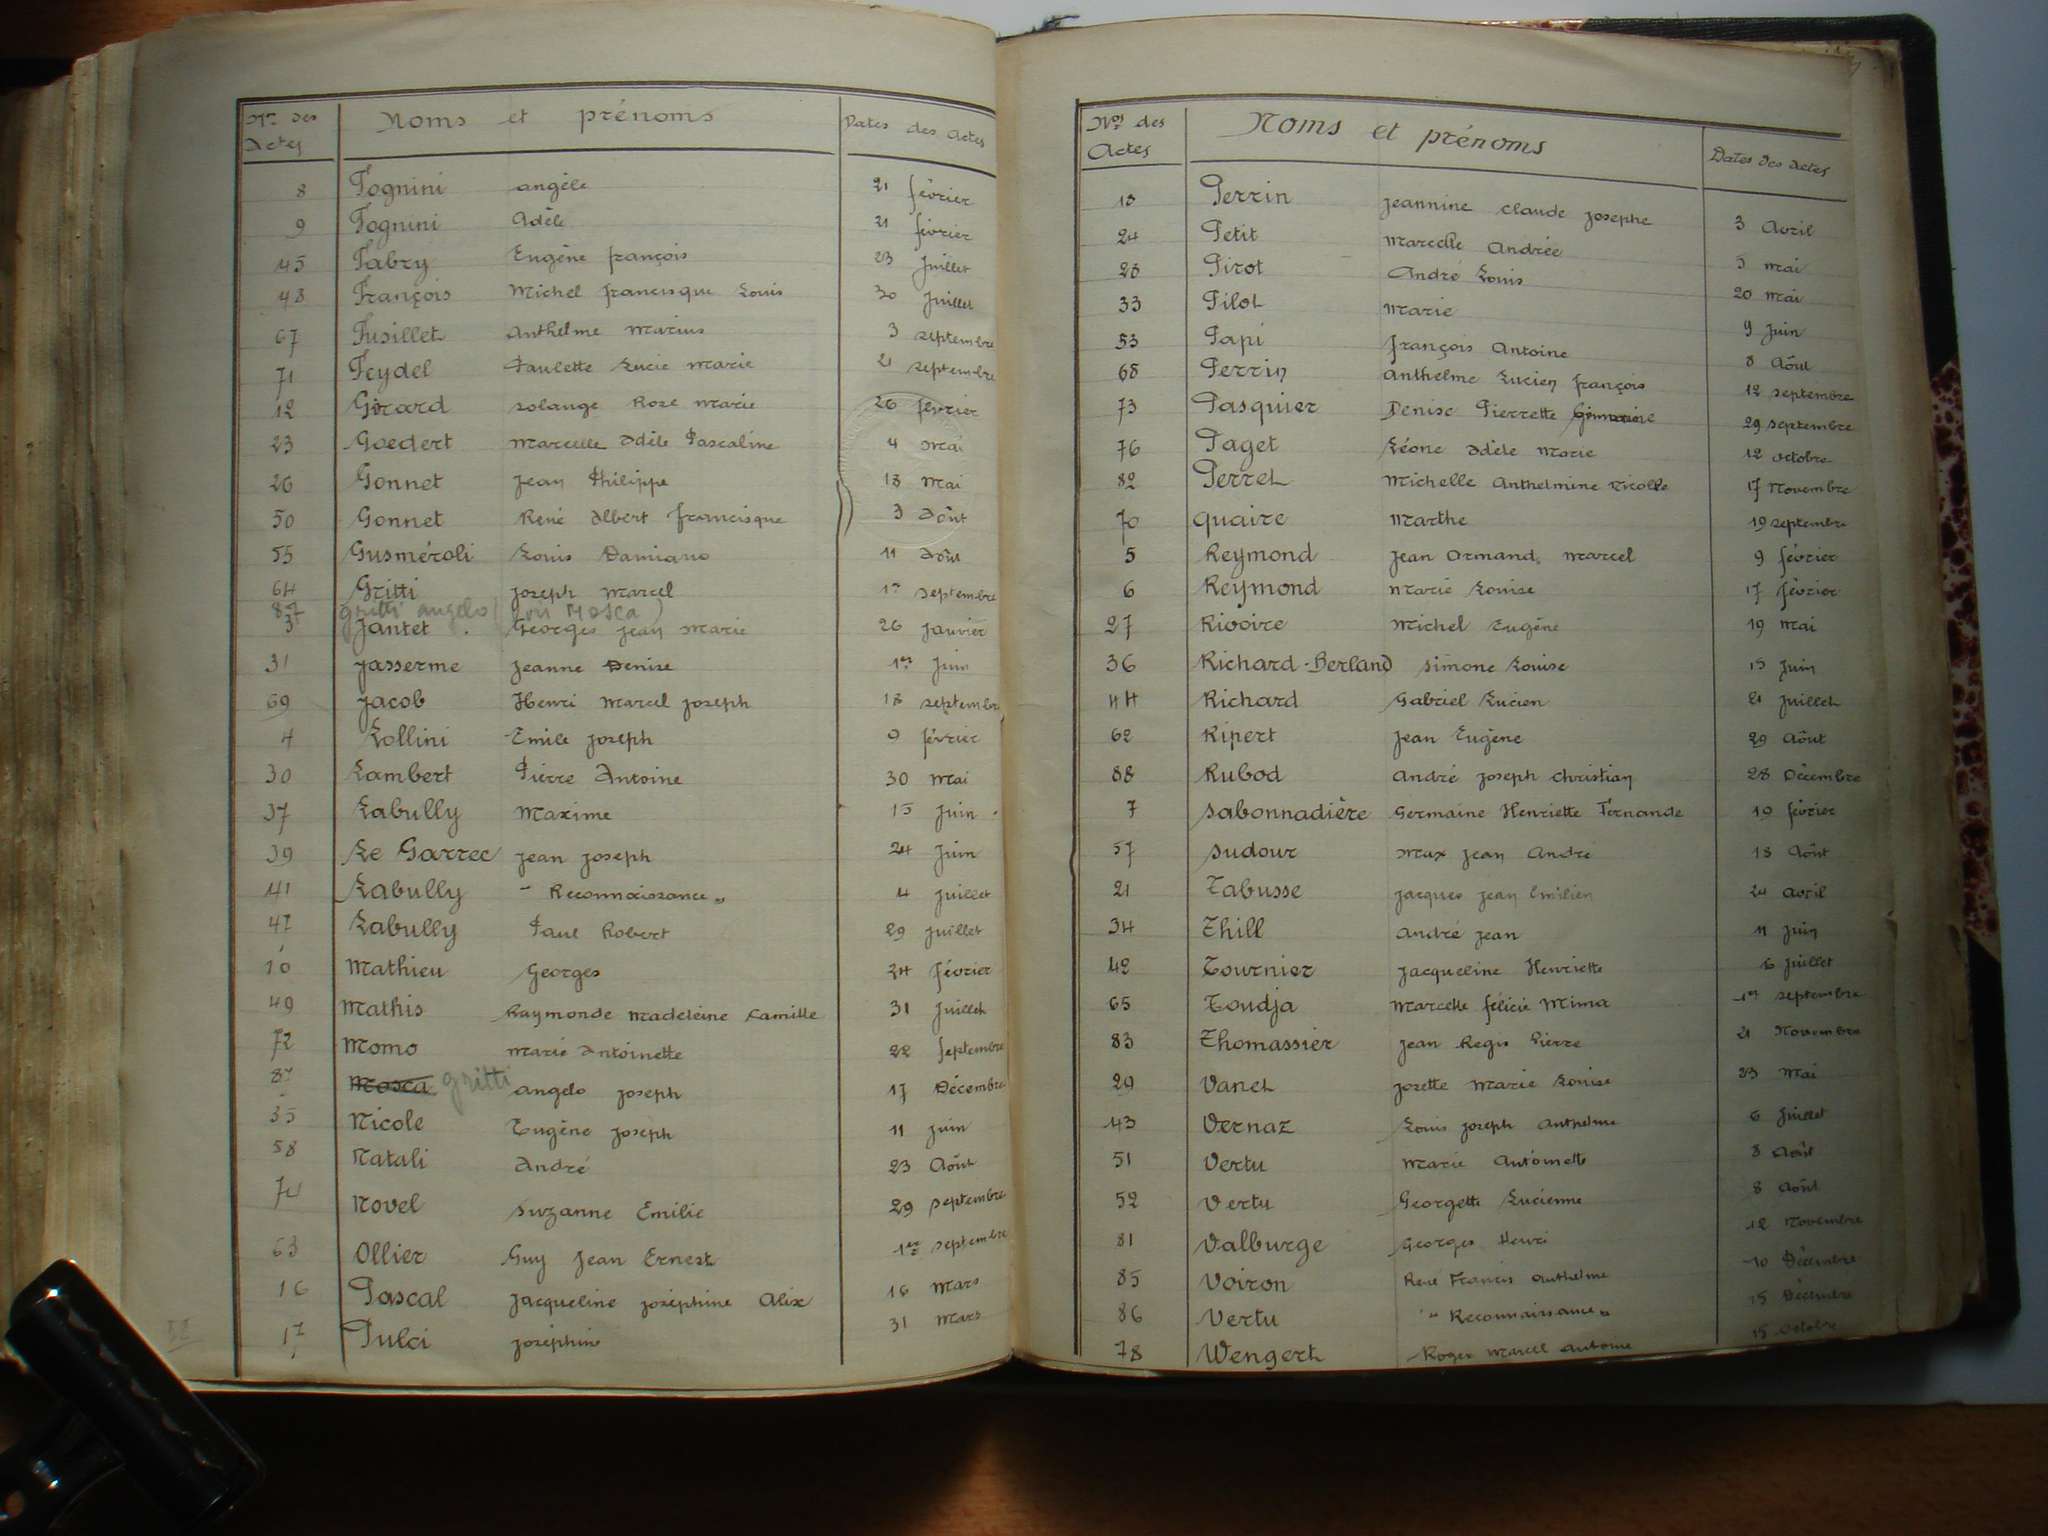 Nos des Actes Noms et prénoms Dates des Actes
8 Fognini Angèle 21 février
9 Fognini Adèle 21 février
45 Fabry Eugène François 23 Juillet
48 François Michel Francisque Louis 30 Juillet
67 Fusillet Anthelme Marius 3 septembre
71 Feydel Paulette Lucie Marie 21 septembre
12 Girard Solange Rose Marie 26 février
23 Goedert Marcelle Adèle Pascaline 4 Mai
26 Gonnet Jean Philippe 13 Mai
50 Gonnet René Albert Francisque 3 Août
55 Gusméroli Louis Damiano 11 Août
64 Gritti Joseph Marcel 1er septembre
87 gritti angelo (ou Mosca)
3 Jantet Georges Jean Marie 26 Janvier
31 Jasserme Jeanne Denise 1er Juin
69 Jacob Henri Marcel Joseph 18 septembre
4 Lollini Emile Joseph 9 février
30 Lambert Pierre Antoine 30 Mai
37 Labully Maxime 15 Juin
39 Le Garrec Jean Joseph 24 Juin
41 Labully - Reconnaissance - 4 Juillet
47 Labully Paul Robert 29 Juillet
10 Mathieu Georges 24 février
49 Mathis Raymonde Madeleine Camille 31 Juillet
72 Momo Marie Antoinette 22 septembre
87 Mosca gritti Angelo Joseph 17 Décembre
35 Nicole Eugène Joseph 11 Juin
58 Natali André 23 Août
74 Novel Suzanne Emilie 29 septembre
63 Ollier Guy Jean Ernest 1er septembre
16 Pascal Jacqueline Joséphine Alix 16 Mars
17 Pulci Joséphine 31 Mars
Nos des Actes Noms et prénoms Dates des Actes
18 Perrin Jeannine Claude Josephe 3 Avril
24 Petit Marcelle Andrée 5 Mai
28 Pirot André Louis 20 Mai
33 Pilot Marie 9 Juin
53 Papi François Antoine 8 Août
68 Perrin Anthelme Lucien François 12 septembre
73 Pasquier Denise Pierrette Germaine 29 septembre
76 Paget Léone Adèle Marie 12 octobre
82 Perret Michelle Anthelmine Nicolle 17 Novembre
70 Quaire Marthe 19 septembre
5 Reymond Jean Armand Marcel 9 février
6 Reymond Marie Louise 17 février
27 Rivoire Michel Eugène 19 Mai
36 Richard-Berland Simone Louise 15 Juin
44 Richard Gabriel Lucien 21 Juillet
62 Ripert Jean Eugène 29 Août
88 Rubod André Joseph Christian 28 Décembre
7 Sabonnadière Germaine Henriette Fernande 19 février
57 Sudour Max Jean André 18 Août
21 Tabusse Jacques Jean Emilien 24 Avril
34 Thill André Jean 11 Juin
42 Tournier Jacqueline Henriette 6 Juillet
65 Toudja Marcelle Félicie Mima 1er septembre
83 Thomassier Jean Regis Pierre 21 Novembre
29 Vanet Josette Marie Louise 23 Mai
43 Vernaz Louis Joseph Anthelme 6 Juillet
51 Vertu Marie Antoinette 8 Août
52 Vertu Georgette Lucienne 8 Août
81 Valburge Georges Henri 12 Novembre
85 Voiron René Francis Anthelme 10 Décembre
86 Vertu - Reconnaissance - 15 Décembre
78 Wengert Roger Marcel Antoine 15 Octobre